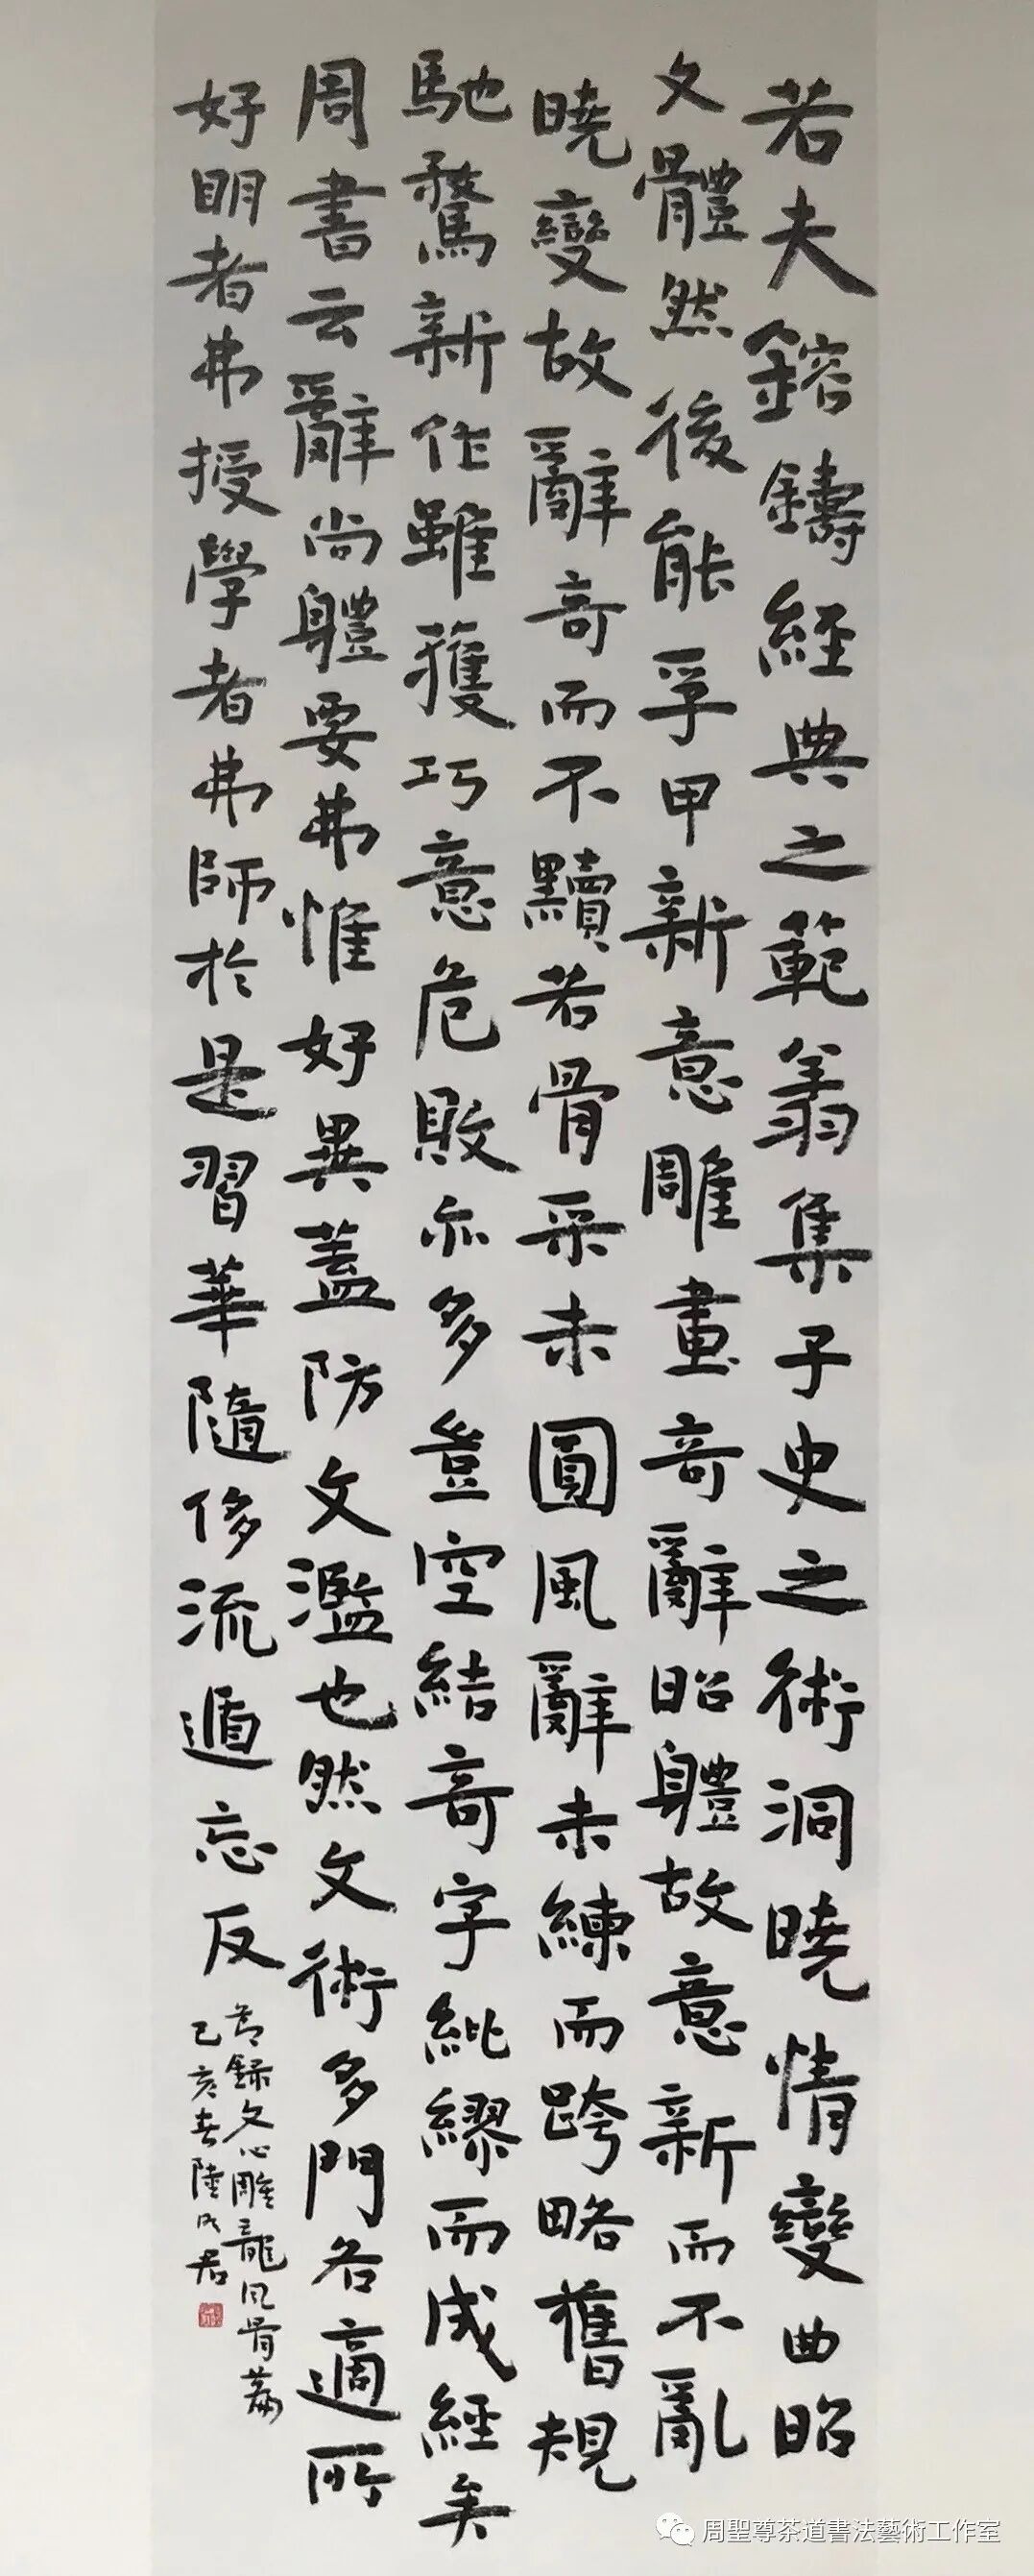 若夫鎔鑄經典之範翔集子史之術洞曉情變曲昭
文體然後能孚甲新意雕畫奇辭昭體故意新而不亂
曉變故辭奇而不黷若骨采未圓風辭未練而跨略舊規
馳騖新作雖獲巧意危敗亦多豈空結奇字紕繆而成經矣
周書云辭尚體要弗惟好異蓋防文濫也然文術多門各適所
好明者弗授學者弗師於是習華隨侈流遁忘反
節録文心雕龍風骨篇
己亥春陸君
周聖尊茶道書法藝術工作室